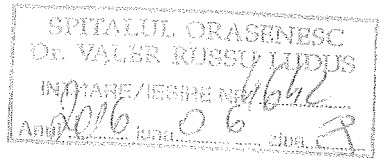 SPITALUL ORASENESC
Dr. VALER RUSSU LUDUS
INTRARE/IESIRE NR. 4642
Anul 2016 luna 06 ziua